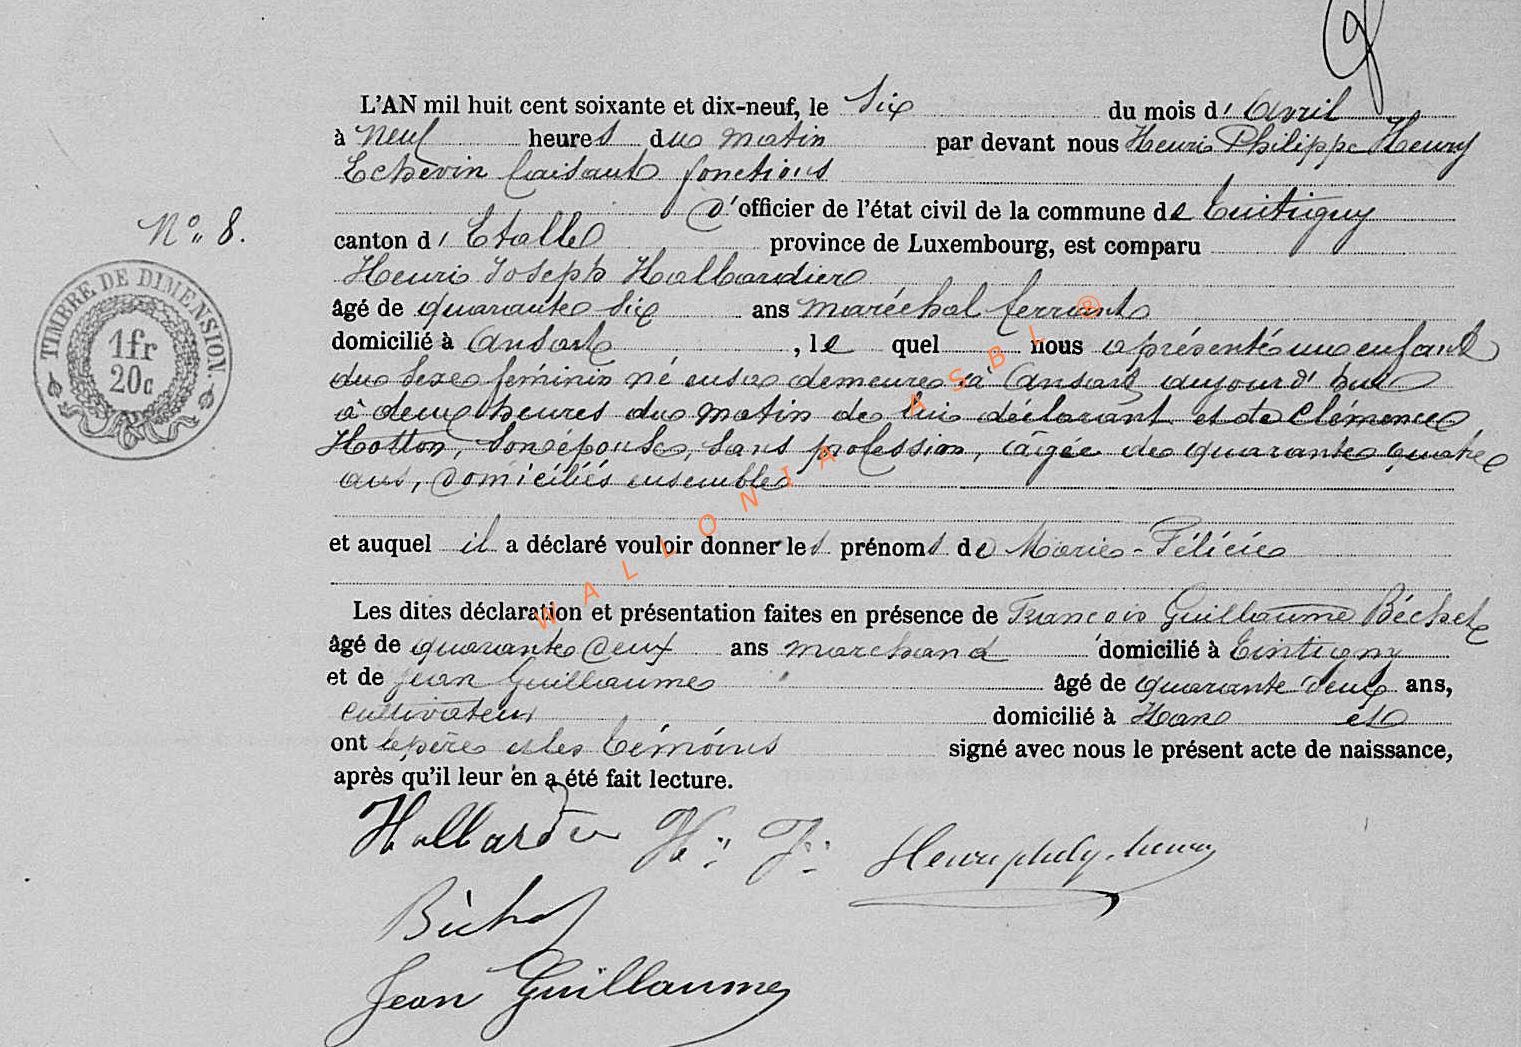 L'AN mil huit cent soixante et dix-neuf, le Six du mois d'Avril
à Neuf heures du matin par devant nous Henri Philippe Henry
Echevin faisant fonctions
d'officier de l'état civil de la commune de Tintigny
N° 8.
canton d'Etalle province de Luxembourg, est comparu
Henri Joseph Halbardier
âgé de quarante six ans maréchal ferrant
domicilié à Ansart, le quel nous a présenté un enfant
du Sexe féminin né en sa demeure à Ansart aujourd'hui
à deux heures du matin de lui déclarant et de Clémence
Hotton, Son épouse, Sans profession, âgée de quarante quatre
ans, domiciliés ensemble
et auquel il a déclaré vouloir donner les prénoms de Marie-Félicie
Les dites déclaration et présentation faites en présence de François Guillaume Béchet
âgé de quarante deux ans marchand domicilié à Tintigny
et de Jean Guillaume âgé de quarante deux ans,
cultivateur domicilié à Han et
ont le père et les témoins signé avec nous le présent acte de naissance,
après qu'il leur en a été fait lecture.
TIMBRE DE DIMENSION
1fr
20c
WALLONIA ASBL ®
Halbardier H. J.
Jean Guillaume